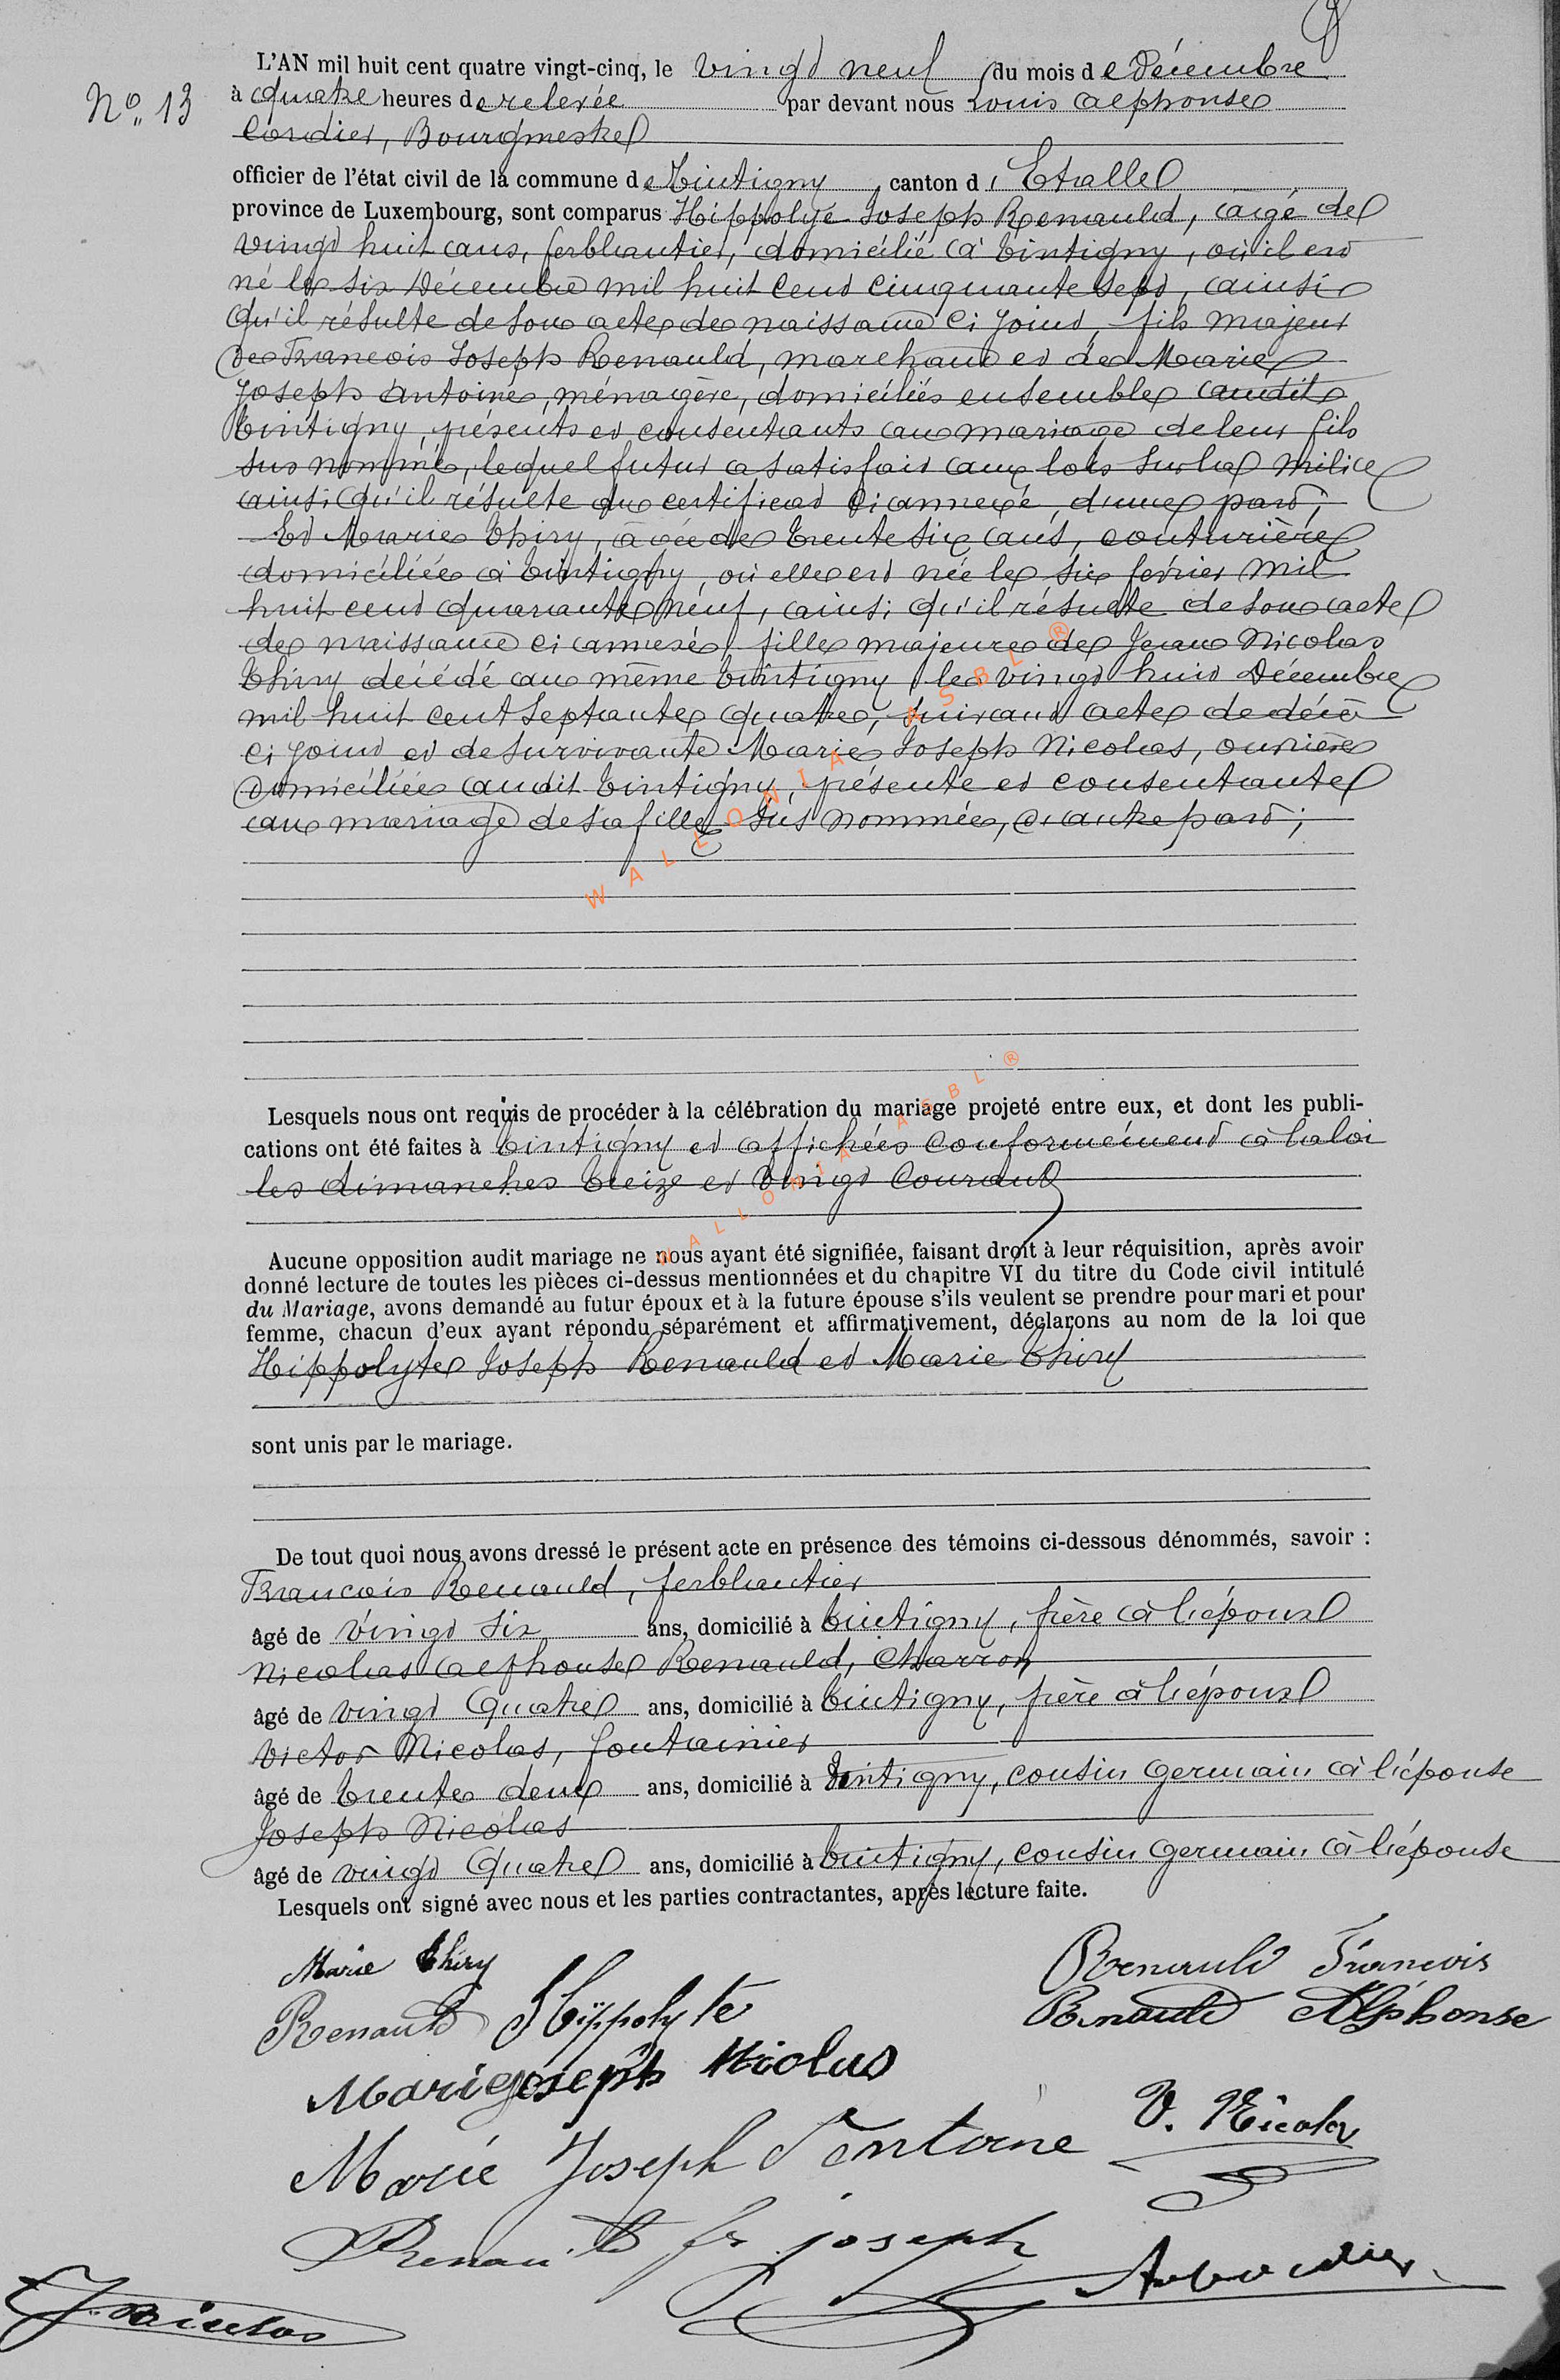 L'AN mil huit cent quatre vingt-cinq, le vingt neuf du mois de Décembre
No. 13
à quatre heures de relevée par devant nous Louis Alphonse
Cordier, Bourgmestre
officier de l'état civil de la commune de Tintigny canton d'Etalle
province de Luxembourg, sont comparus Hippolyte Joseph Renauld, âgé de
vingt huit ans, ferblantier, domicilié à Tintigny, où il est
né le six Décembre mil huit cent cinquante sept, ainsi
qu'il résulte de son acte de naissance ci joint, fils majeur
de François Joseph Renauld, marchand et de Marie
Joseph Antoine, ménagère, domiciliés ensemble audit
Tintigny, présents et consentants au mariage de leur fils
sus nommé, lequel futur a satisfait aux lois sur la milice
ainsi qu'il résulte du certificat ci annexé, d'une part;
Et Marie Thiry, âgée de trente six ans, couturière
domiciliée à Tintigny, où elle est née le six février mil
huit cent quarante neuf, ainsi qu'il résulte de son acte
de naissance ci annexé, fille majeure de Jean Nicolas
Thiry décédé au même Tintigny le vingt huit Décembre
mil huit cent septante quatre, suivant acte de décès
ci joint et de survivante Marie Joseph Nicolas, ouvrière
domiciliée audit Tintigny, présente et consentante
au mariage de sa fille sus nommée, d'autre part;
WALLONIA ASBL ®
Lesquels nous ont requis de procéder à la célébration du mariage projeté entre eux, et dont les publi-
cations ont été faites à Tintigny et affichées conformément à la loi
les dimanches treize et vingt courant
WALLONIA ASBL ®
Aucune opposition audit mariage ne nous ayant été signifiée, faisant droit à leur réquisition, après avoir
donné lecture de toutes les pièces ci-dessus mentionnées et du chapitre VI du titre du Code civil intitulé
du Mariage, avons demandé au futur époux et à la future épouse s'ils veulent se prendre pour mari et pour
femme, chacun d'eux ayant répondu séparément et affirmativement, déclarons au nom de la loi que
Hippolyte Joseph Renauld et Marie Thiry
sont unis par le mariage.
De tout quoi nous avons dressé le présent acte en présence des témoins ci-dessous dénommés, savoir :
François Renauld, ferblantier
âgé de vingt six ans, domicilié à Tintigny, frère à l'époux
Nicolas Alphonse Renauld, Charron
âgé de vingt quatre ans, domicilié à Tintigny, frère à l'époux
Victor Nicolas, fontainier
âgé de trente deux ans, domicilié à Tintigny, cousin germain à l'épouse
Joseph Nicolas
âgé de vingt quatre ans, domicilié à Tintigny, cousin germain à l'épouse
Lesquels ont signé avec nous et les parties contractantes, après lecture faite.
Marie Thiry
Renauld François
Renauld Hippolyte
Renauld Alphonse
Marie joseph Nicolas
V. Nicolas
Marie Joseph Antoine
Renauld fs joseph
J. Nicolas